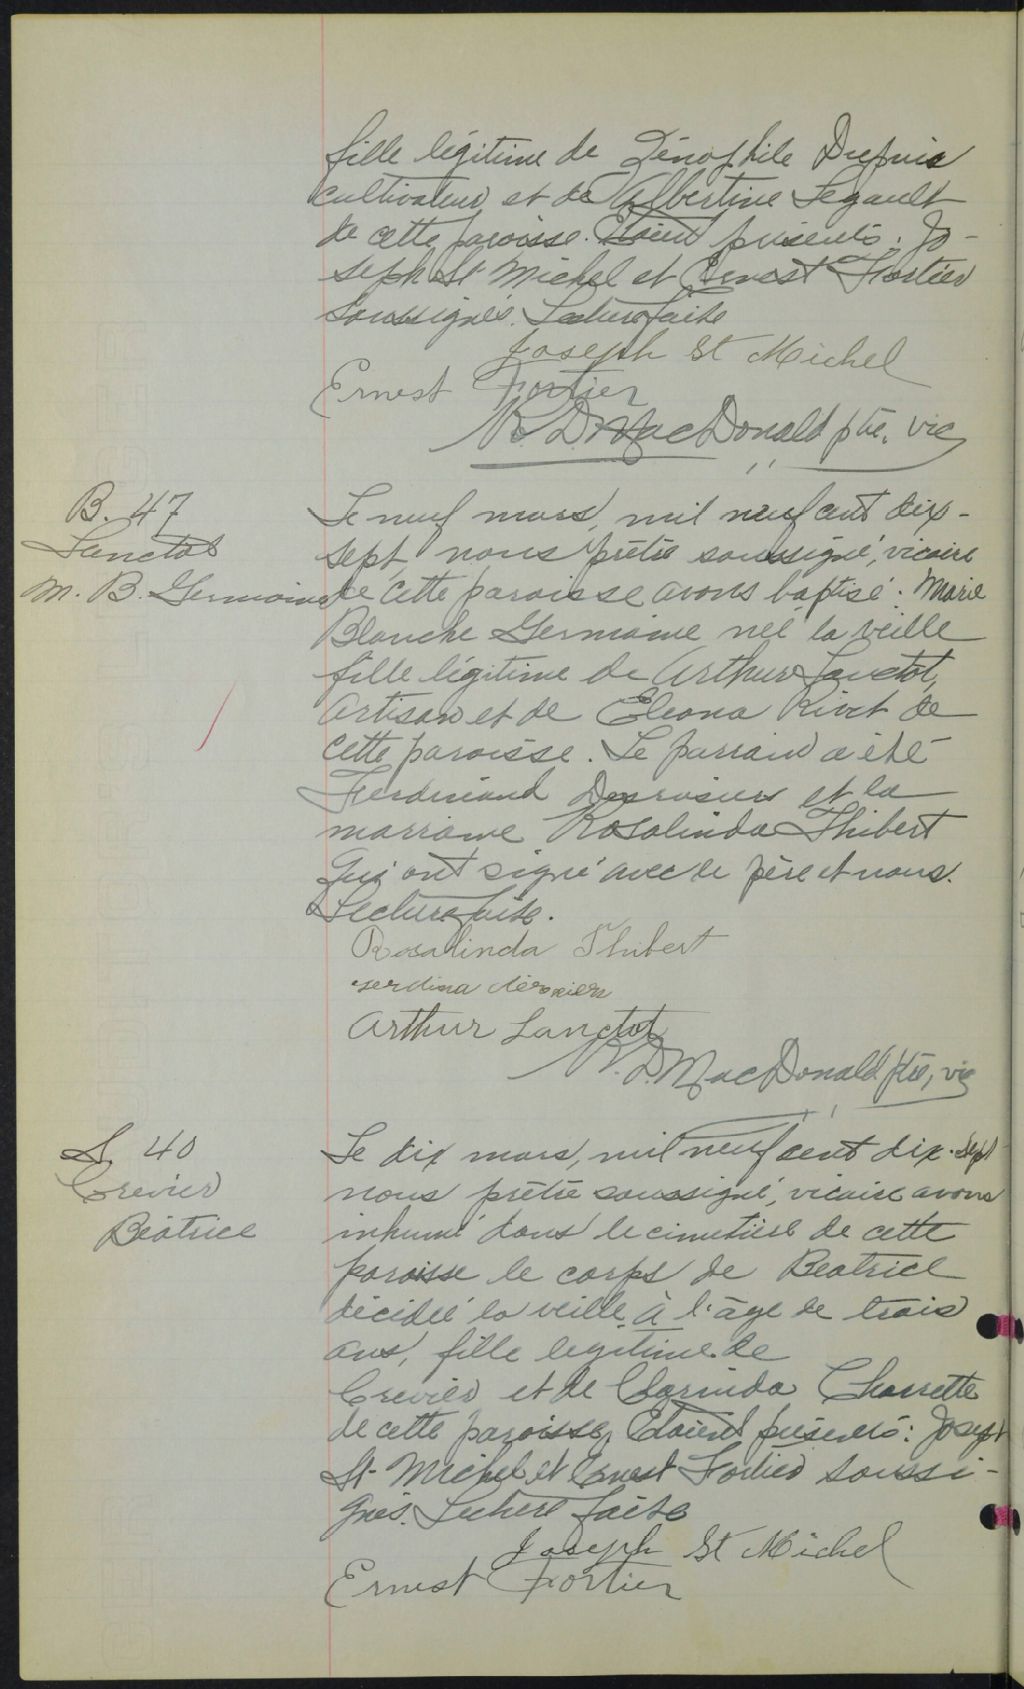 fille légitime de Zénophile Dupuis
cultivateur et de Albertine Legault
de cette paroisse. Etaient présents : Jo-
seph St Michel et Ernest Fortier
soussignés. Lecture faite
Joseph St Michel
Ernest Fortier
R. D. MacDonald ptre, vic
B. 47
Lanctot
M. B. Germaine
Le neuf mars, mil neuf cent dix-
sept, nous prêtre soussigné, vicaire
de cette paroisse avons baptisé : Marie
Blanche Germaine née la veille
fille légitime de Arthur Lanctot,
artisan et de Eleona Rivet de
cette paroisse. Le parrain a été
Ferdinand Desrosiers et la
marraine Rosalinda Thibert
qui ont signé avec le père et nous.
Lecture faite.
Rosalinda Thibert
ferdina dérosiers
Arthur Lanctot
R. D. MacDonald ptre, vic
S. 40
Crevier
Béatrice
Le dix mars, mil neuf cent dix-sept
nous prêtre soussigné, vicaire avons
inhumé dans le cimetière de cette
paroisse le corps de Beatrice
décédée la veille à l'âge de trois
ans, fille legitime de
Crevier et de Clarinda Charrette
de cette paroisse, Etaient présents : Joseph
St Michel et Ernest Fortier soussi-
gnés. Lecture faite
Joseph St Michel
Ernest Fortier